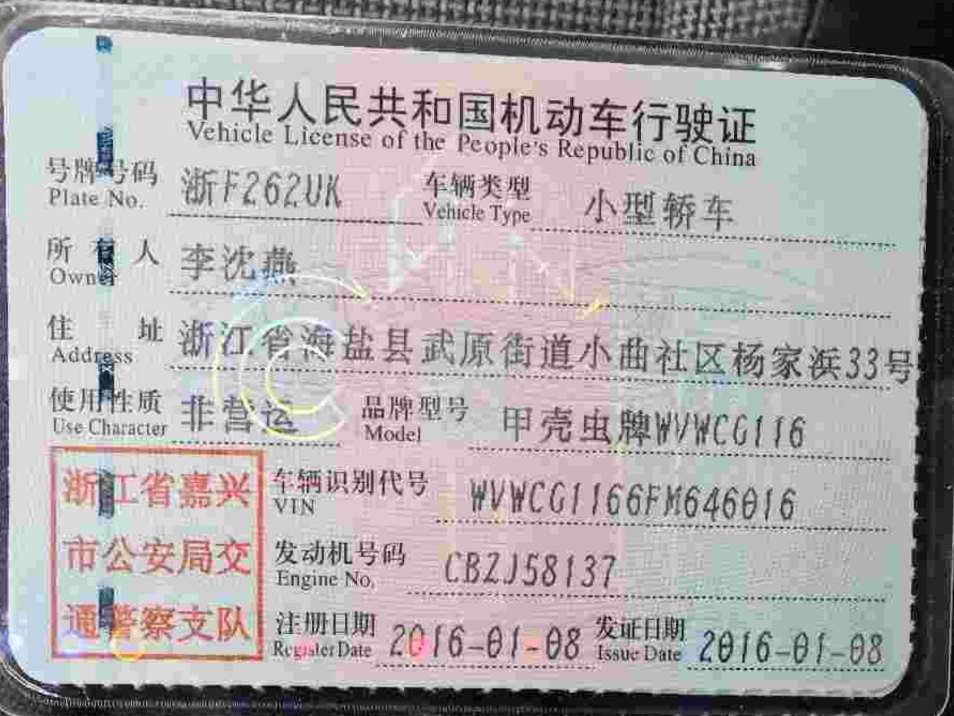 中华人民共和国机动车行驶证
Vehicle License of the People's Republic of China
号牌号码 浙F262UK 车辆类型 小型轿车
Plate No. Vehicle Type
所有人 李沈燕
Owner
住址 浙江省海盐县武原街道小曲社区杨家浜33号
Address
使用性质 非营运 品牌型号 甲壳虫牌WVWCG116
Use Character Model
浙江省嘉兴 车辆识别代号 WVWCG1166FM646016
VIN
市公安局交 发动机号码 CBZJ58137
Engine No.
通警察支队 注册日期 2016-01-08 发证日期 2016-01-08
Register Date Issue Date